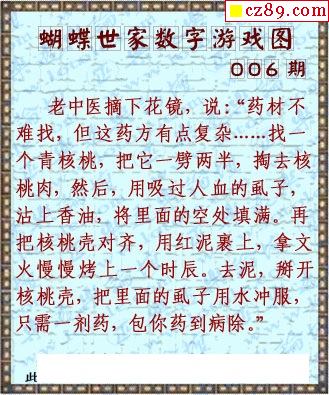 cz89.com
蝴蝶世家数字游戏图
006 期
老中医摘下花镜，说：“药材不
难找，但这药方有点复杂……找一
个青核桃，把它一劈两半，掏去核
桃肉，然后，用吸过人血的虱子，
沾上香油，将里面的空处填满。再
把核桃壳对齐，用红泥裹上，拿文
火慢慢烤上一个时辰。去泥，掰开
核桃壳，把里面的虱子用水冲服，
只需一剂药，包你药到病除。”
此